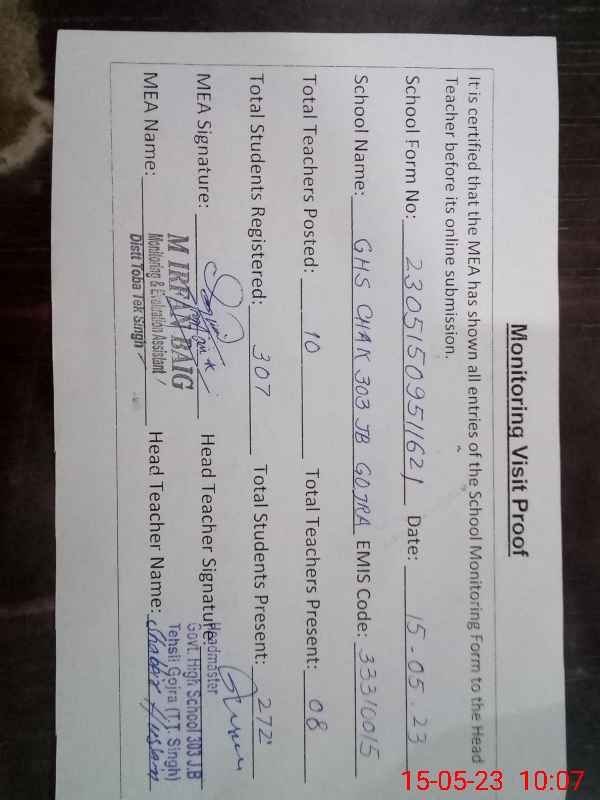 Monitoring Visit Proof
It is certified that the MEA has shown all entries of the School Monitoring Form to the Head
Teacher before its online submission.
School Form No: 2305150951162 1 Date: 15-05-23
School Name: GHS CHAK 303 JB GOJRA EMIS Code: 33310015
Total Teachers Posted: 10 Total Teachers Present: 08
Total Students Registered: 307 Total Students Present: 272
MEA Signature: Head Teacher Signature:
M IRFAN BAIG
Monitoring & Evaluation Assistant
Distt Toba Tek Singh
Headmaster
Govt. High School 303 J.B
Tehsil Gojra (T.T. Singh)
MEA Name: Head Teacher Name: Shabbir
15-05-23 10:07